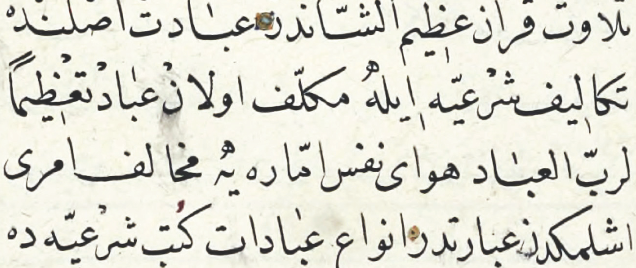 تلاوت قرآن عظيم الشّاندر عبادت اصلنده
تكاليف شرعيّه ايله مكلّف اولان عباد تعظيماً
لربّ العباد هواى نفس امّاره يه مخالف امرى
اشلمكدن عبارتدر انواع عبادات كتب شرعيّه ده